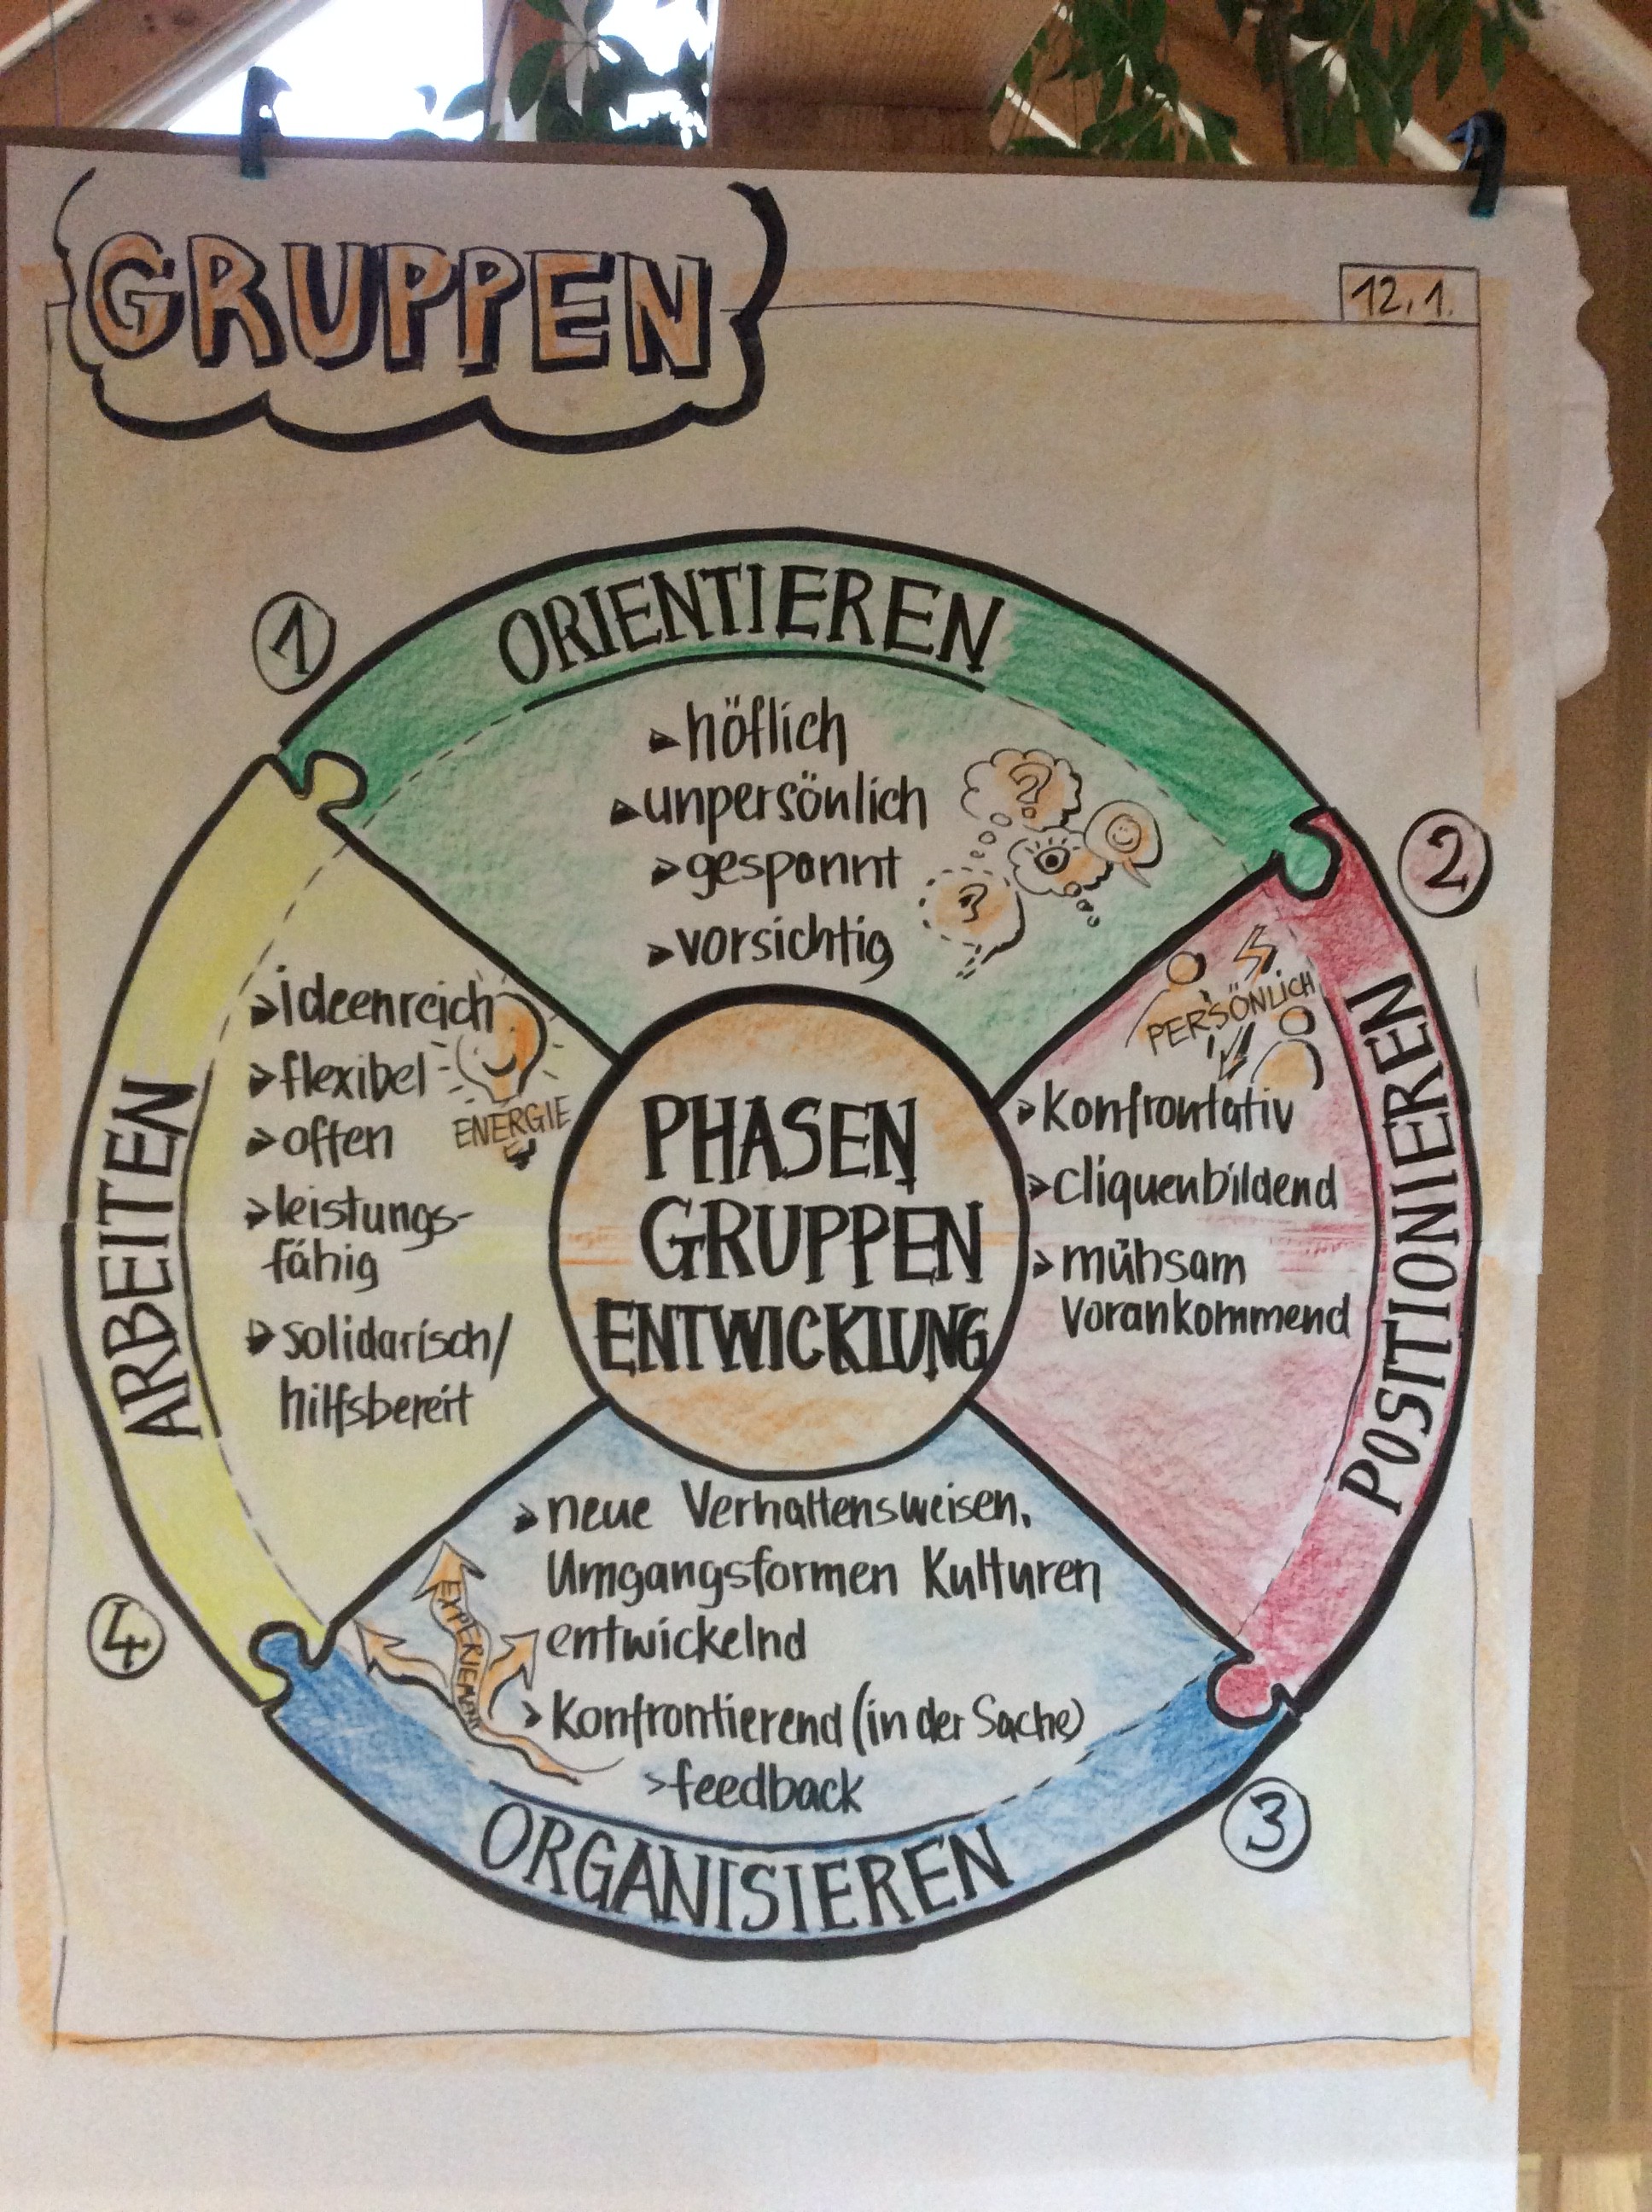 GRUPPEN
12.1.
1
ORIENTIEREN
höflich
unpersönlich
gespannt
vorsichtig
?
?
2
POSITIONIEREN
PERSÖNLICH
Konfrontativ
cliquenbildend
mühsam
vorankommend
PHASEN
GRUPPEN
ENTWICKLUNG
3
ORGANISIEREN
neue Verhaltensweisen,
Umgangsformen Kulturen
entwickelnd
Konfrontierend (in der Sache)
>feedback
EXPERIEMENT
4
ARBEITEN
ideenreich
flexibel
offen
leistungs-
fähig
solidarisch/
hilfsbereit
ENERGIE